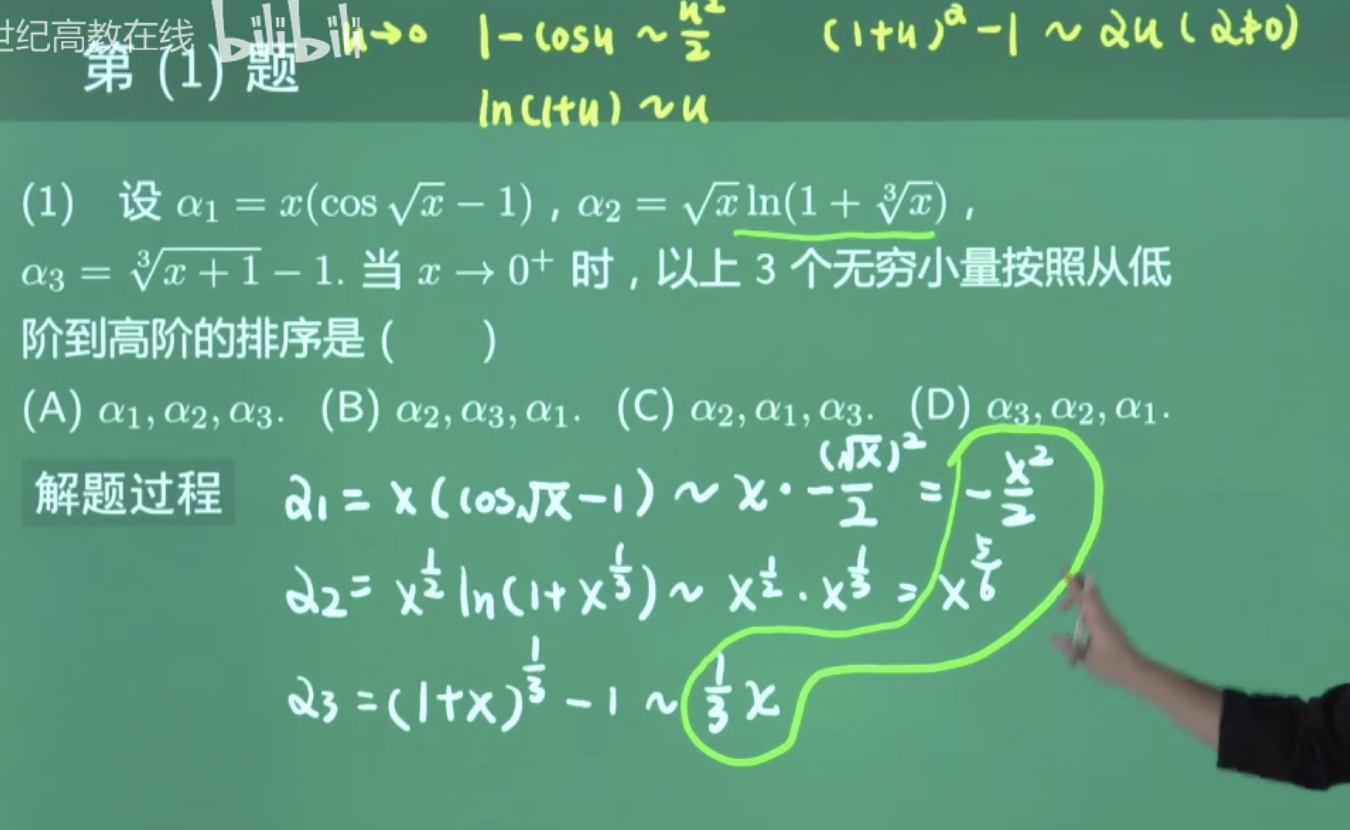 世纪高教在线 bilibili
u→0 1-cosu ~ u²/2 (1+u)^α -1 ~ αu (α≠0)
第 (1) 题
ln(1+u) ~ u
(1) 设 α₁ = x(cos √x − 1) , α₂ = √x ln(1 + ∛x) ,
α₃ = ∛(x + 1) − 1. 当 x → 0⁺ 时 , 以上 3 个无穷小量按照从低
阶到高阶的排序是 ( )
(A) α₁, α₂, α₃. (B) α₂, α₃, α₁. (C) α₂, α₁, α₃. (D) α₃, α₂, α₁.
解题过程 α₁ = x(cos√x −1) ~ x · −(√x)²/2 = −x²/2
α₂ = x^(1/2) ln(1+x^(1/3)) ~ x^(1/2) · x^(1/3) = x^(5/6)
α₃ = (1+x)^(1/3) − 1 ~ 1/3 x